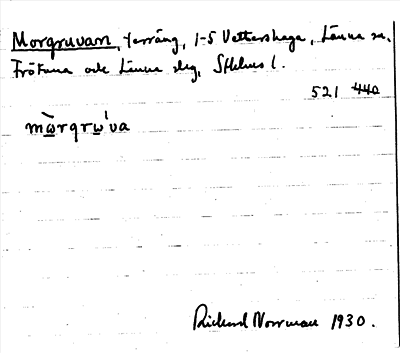 Morgruvan, terräng, 1-5 Vettershaga, Länna sn.
Frötuna och Länna slg, Sthlms l.
521 440
mωrgrω'va
Rickard Norrman 1930.